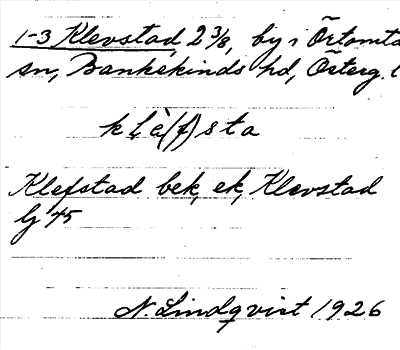 1-3 Klevstad, 2 3/8, by i Örtomta
sn, Bankekinds hd, Österg. l
klè(f)sta
Klefstad bek, ek, Klevstad
lj 45
N. Lindqvist 1926